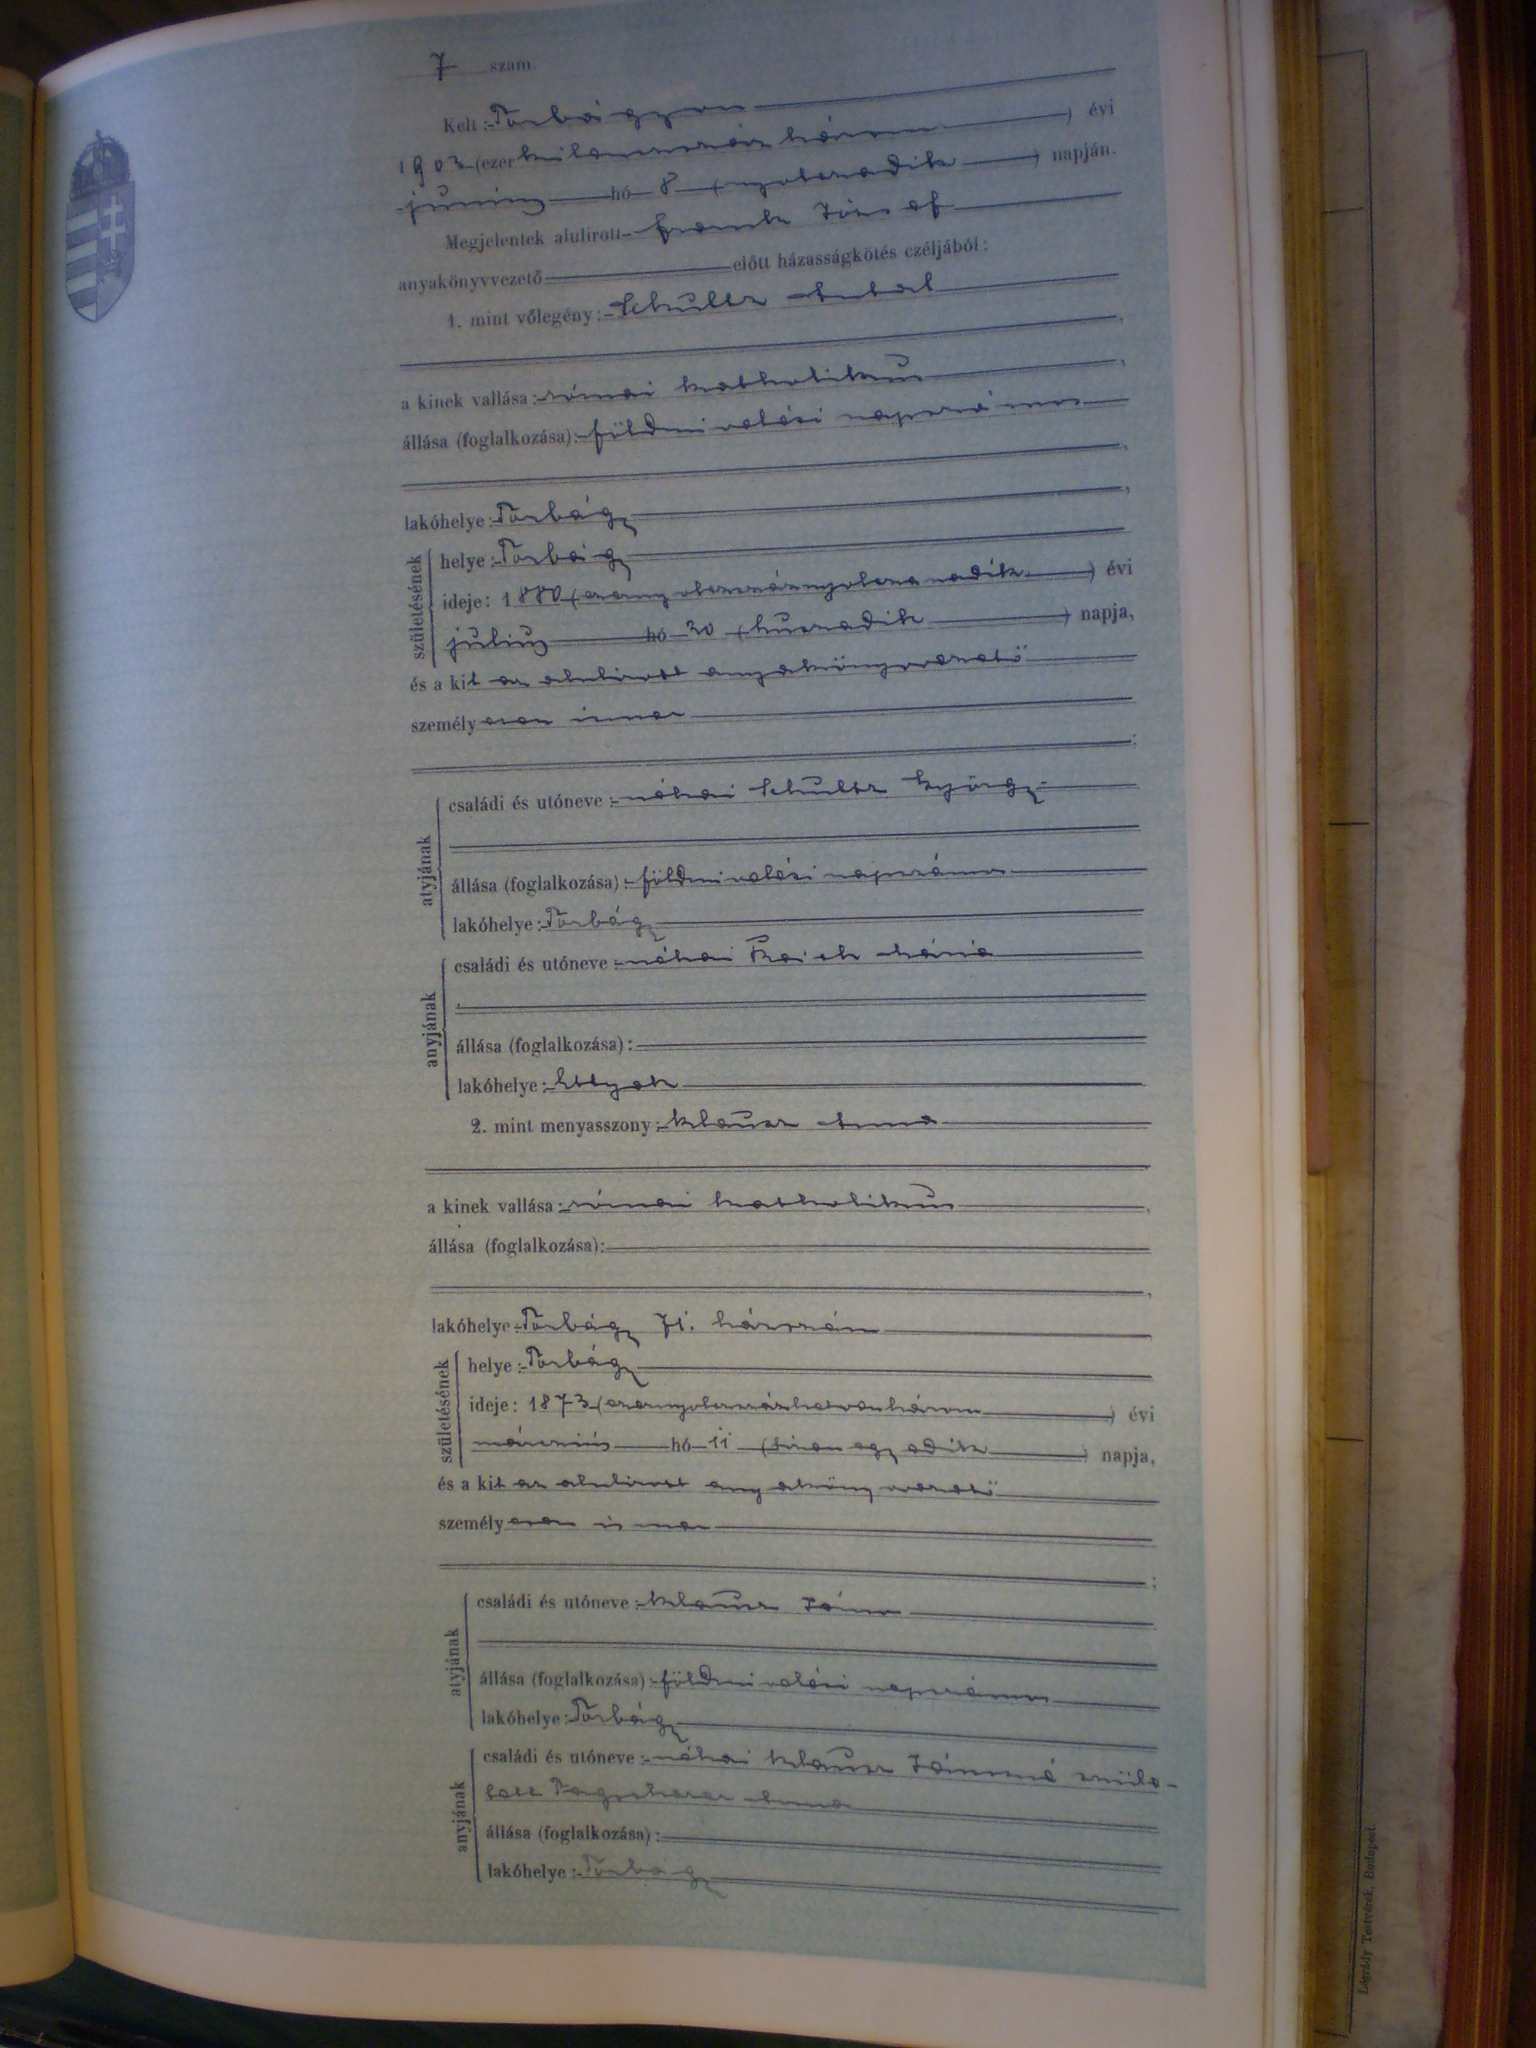 7 szám.
Kelt: Torbágyon
1903 (ezer kilencszáz három) évi
június hó 8 (nyolczadik) napján.
Megjelentek alulirott Frank József
anyakönyvvezető előtt házasságkötés czéljából:
1. mint vőlegény: Schultz Antal
a kinek vallása: római katholikus,
állása (foglalkozása): földmivelési napszámos,
lakóhelye: Torbágy,
születésének
helye: Torbágy
ideje: 1880 (ezernyolczszáznyolczvanadik) évi
július hó 20 (huszadik) napja,
és a kit az alulirott anyakönyvvezető
személyesen ismer;
atyjának
családi és utóneve: néhai Schultz György
állása (foglalkozása): földmivelési napszámos
lakóhelye: Torbágy
anyjának
családi és utóneve: néhai Mária
állása (foglalkozása):
lakóhelye: Ettyek
2. mint menyasszony: Klausz Anna
a kinek vallása: római katholikus,
állása (foglalkozása):
lakóhelye: Torbágy 71. házszám
születésének
helye: Torbágy
ideje: 1873 (ezernyolczszázhetvenhárom) évi
márczius hó 11 (tizenegyedik) napja,
és a kit az alulirott anyakönyvvezető
személyesen ismer;
atyjának
családi és utóneve: Klausz János
állása (foglalkozása): földmivelési napszámos
lakóhelye: Torbágy
anyjának
családi és utóneve: néhai Klausz Jánosné szüle-
tett Anna
állása (foglalkozása):
lakóhelye: Torbágy
Légrády Testvérek, Budapest.